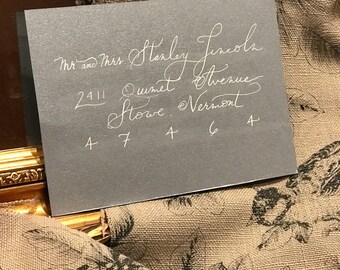 Mr and Mrs Stanley Lincoln
2411 Quimet Avenue
Stowe, Vermont
4 7 4 6 4